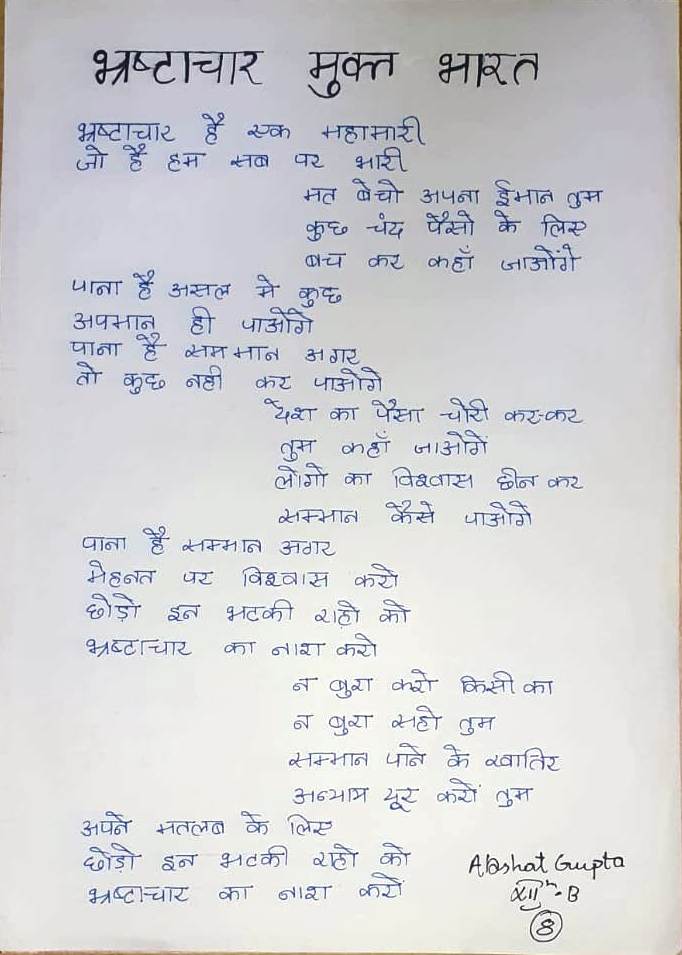 भ्रष्टाचार मुक्त भारत
भ्रष्टाचार है एक महामारी
जो है हम सब पर भारी
मत बेचो अपना ईमान तुम
कुछ चंद पैसो के लिए
बच कर कहाँ जाओगे
पाना है असल मे कुछ
अपमान ही पाओगे
पाना है सम मान अगर
तो कुछ नही कर पाओगे
देश का पैसा चोरी कर-कर
तुम कहाँ जाओगें
लोगो का विश्वास छीन कर
सम्मान कैसे पाओगे
पाना है सम्मान अगर
मेहनत पर विश्वास करो
छोड़ो इन भटकी राहो को
भ्रष्टाचार का नाश करो
न बुरा करो किसी का
न बुरा सहो तुम
सम्मान पाने के खातिर
अन्याय दूर करों तुम
अपने मतलब के लिए
छोड़ो इन भटकी राहो को
भ्रष्टाचार का नाश करों
Akshat Gupta
XIIth-B
8